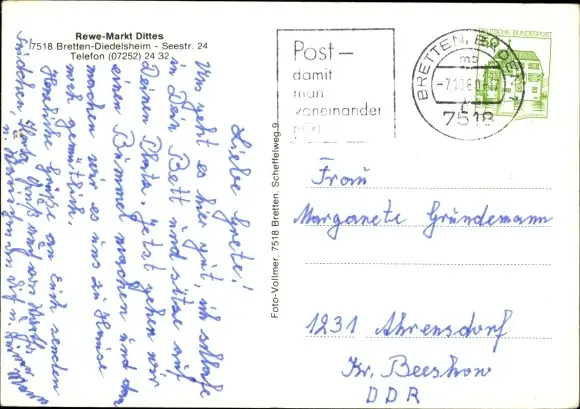 Rewe-Markt Dittes
7518 Bretten-Diedelsheim - Seestr. 24
Telefon (07252) 24 32
Post-
damit
man
voneinander
hört
DEUTSCHE BUNDESPOST
BRETTEN,
mb
-7.10.80
7518
Liebe Grete!
Uns geht es hier gut, ich schlafe
in Dein Bett und sitze auf
Deinen Platz. Jetzt gehen wir
einen Bummel machen und dann
machen wir es uns zu Hause
noch gemütlich.
Herzliche Grüße an Euch senden
Foto-Vollmer, 7518 Bretten, Scheffelweg 9
Frau
Margarete Gründemann
1231 Ahrensdorf
Kr. Beeskow
DDR